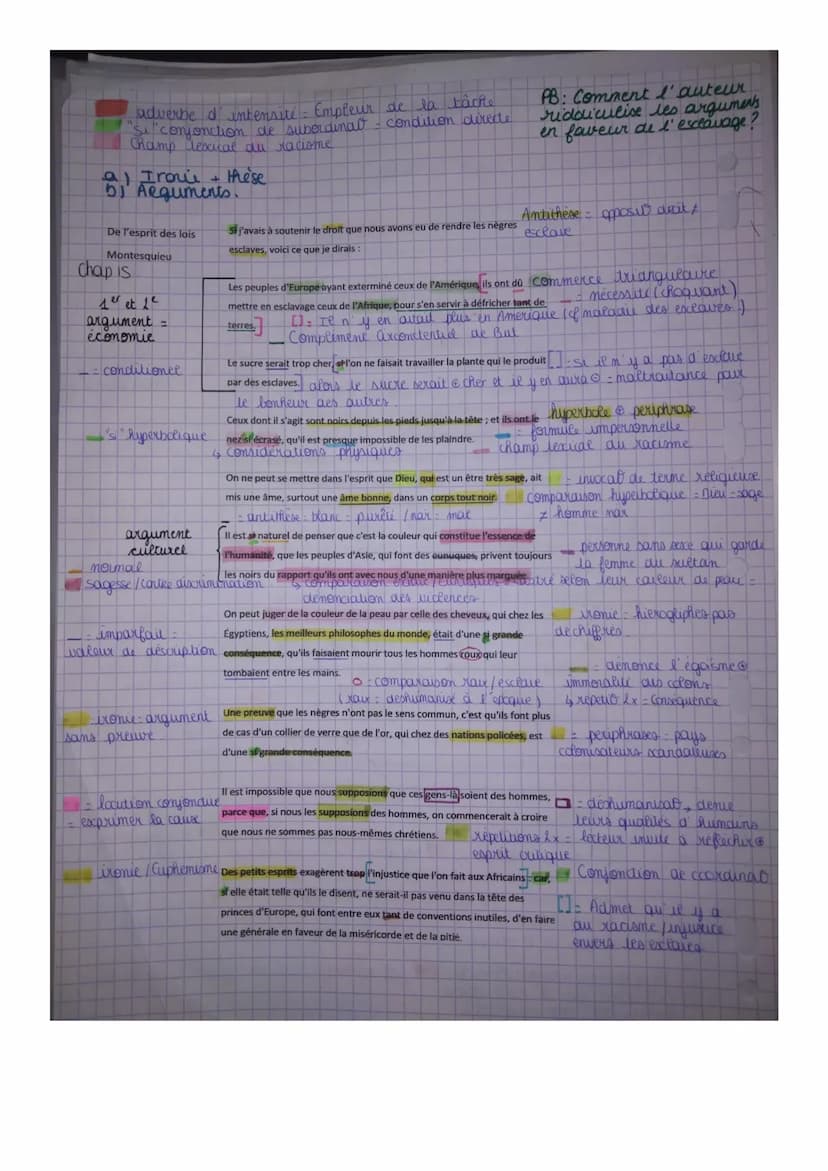 adverbe d'intensité = Empleur de la tâche
"si" conjonction de subordinat° = condition directe
Champ lexical du racisme
PB: Comment l'auteur
ridiculise les arguments
en faveur de l'esclavage ?
a) Ironie + thèse
b) Arguments.
De l'esprit des lois
Montesquieu
Chap 15
Si j'avais à soutenir le droit que nous avons eu de rendre les nègres
esclaves, voici ce que je dirais :
Antithèse = oppositt° droit ≠
esclave
1er et 2e
argument =
économie
_ = conditionel
Les peuples d'Europe ayant exterminé ceux de l'Amérique, ils ont dû
mettre en esclavage ceux de l'Afrique, pour s'en servir à défricher tant de
terres.
commerce triangulaire
_ = nécessité (choquant)
[] = Il n'y en avait plus en Amérique (cf maladie des esclaves !)
_ Complément circonstentiel de But
Le sucre serait trop cher, si l'on ne faisait travailler la plante qui le produit
par des esclaves.
[] = si il n'y a pas d'esclave
alors le sucre serait ⊕ cher et il y en aura ⊖ = maltraitance pour
le bonheur des autres
Ceux dont il s'agit sont noirs depuis les pieds jusqu'à la tête ; et ils ont le
nez si écrasé, qu'il est presque impossible de les plaindre.
= "si" hyperbolique
hyperbole ⊕ periphrase
= formule impersonnelle
champ lexical du racisme
↳ considérations physiques
On ne peut se mettre dans l'esprit que Dieu, qui est un être très sage, ait
mis une âme, surtout une âme bonne, dans un corps tout noir.
= invocat° de terme religieuse
comparaison hyperbolique = Dieu = sage
≠ homme noir
= antithèse : blanc = pureté / noir = mal
argument
culturel
= normal
= sagesse / contre discrimination
Il est si naturel de penser que c'est la couleur qui constitue l'essence de
l'humanité, que les peuples d'Asie, qui font des eunuques, privent toujours
les noirs du rapport qu'ils ont avec nous d'une manière plus marquée.
= personne sans sexe qui garde
la femme du sultan
↳ comparaison esclave / eunuques = selon leur couleur de peau =
dénonciation des violences
On peut juger de la couleur de la peau par celle des cheveux, qui chez les
Égyptiens, les meilleurs philosophes du monde, était d'une si grande
conséquence, qu'ils faisaient mourir tous les hommes roux qui leur
tombaient entre les mains.
_ = imparfait =
valeur de description
= ironie = hieroglyphes pas
dechiffrés.
= dénonce l'égoisme ⊕
immoralité des colons
↳ répétit° 2x = Conséquence
O = comparaison roux / esclave
(roux = deshumanisé à l'époque)
= ironie = argument
sans preuve
Une preuve que les nègres n'ont pas le sens commun, c'est qu'ils font plus
de cas d'un collier de verre que de l'or, qui chez des nations policées, est
d'une si grande conséquence.
= periphrases = pays
colonisateurs scandaleuses
= locution conjonctive
= exprimer la cause
Il est impossible que nous supposions que ces gens-là soient des hommes,
parce que, si nous les supposions des hommes, on commencerait à croire
que nous ne sommes pas nous-mêmes chrétiens.
= déshumanisat°, dénie
leurs qualités d'humains
répétitions 2x = lecteur invité à réfléchir ⊕
esprit critique
= ironie / Euphémisme
Des petits esprits exagèrent trop l'injustice que l'on fait aux Africains : car,
si elle était telle qu'ils le disent, ne serait-il pas venu dans la tête des
princes d'Europe, qui font entre eux tant de conventions inutiles, d'en faire
une générale en faveur de la miséricorde et de la pitié.
= Conjonction de coordinat°
[] = Admet qu'il y a
du racisme / injustice
envers les esclaves